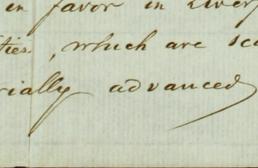 en favor in Liver
ties, which are sca
rially advanced